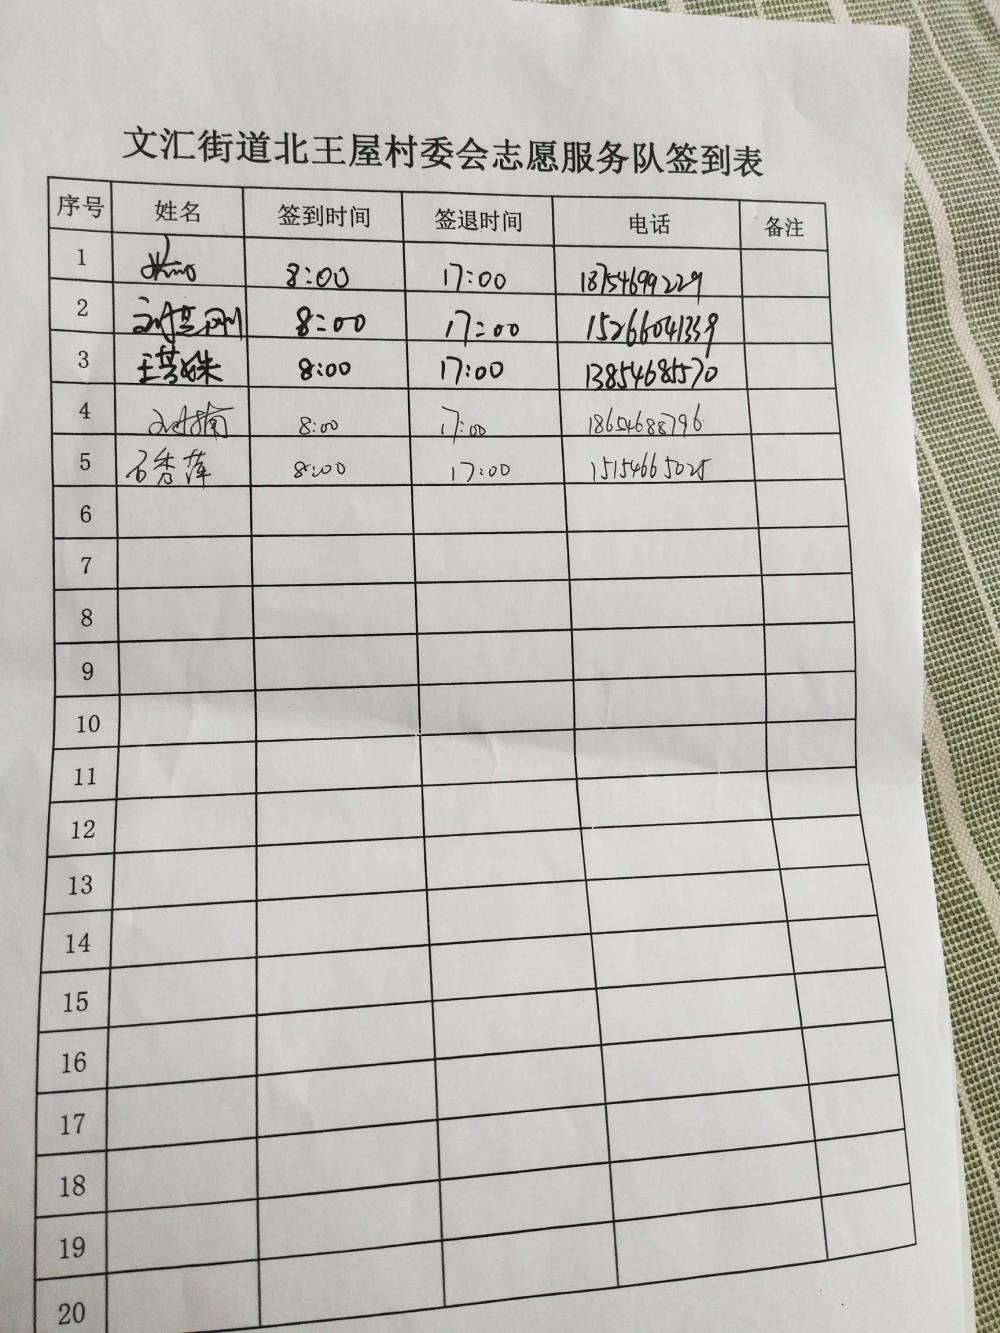 文汇街道北王屋村委会志愿服务队签到表
序号 姓名 签到时间 签退时间 电话 备注
1 8:00 17:00 18754699229
2 8:00 17:00 15266041339
3 8:00 17:00 13854685570
4 8:00 17:00 18654688796
5 石秀萍 8:00 17:00 15154665025
6
7
8
9
10
11
12
13
14
15
16
17
18
19
20